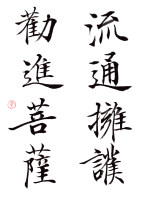 流通擁護
勸進菩薩